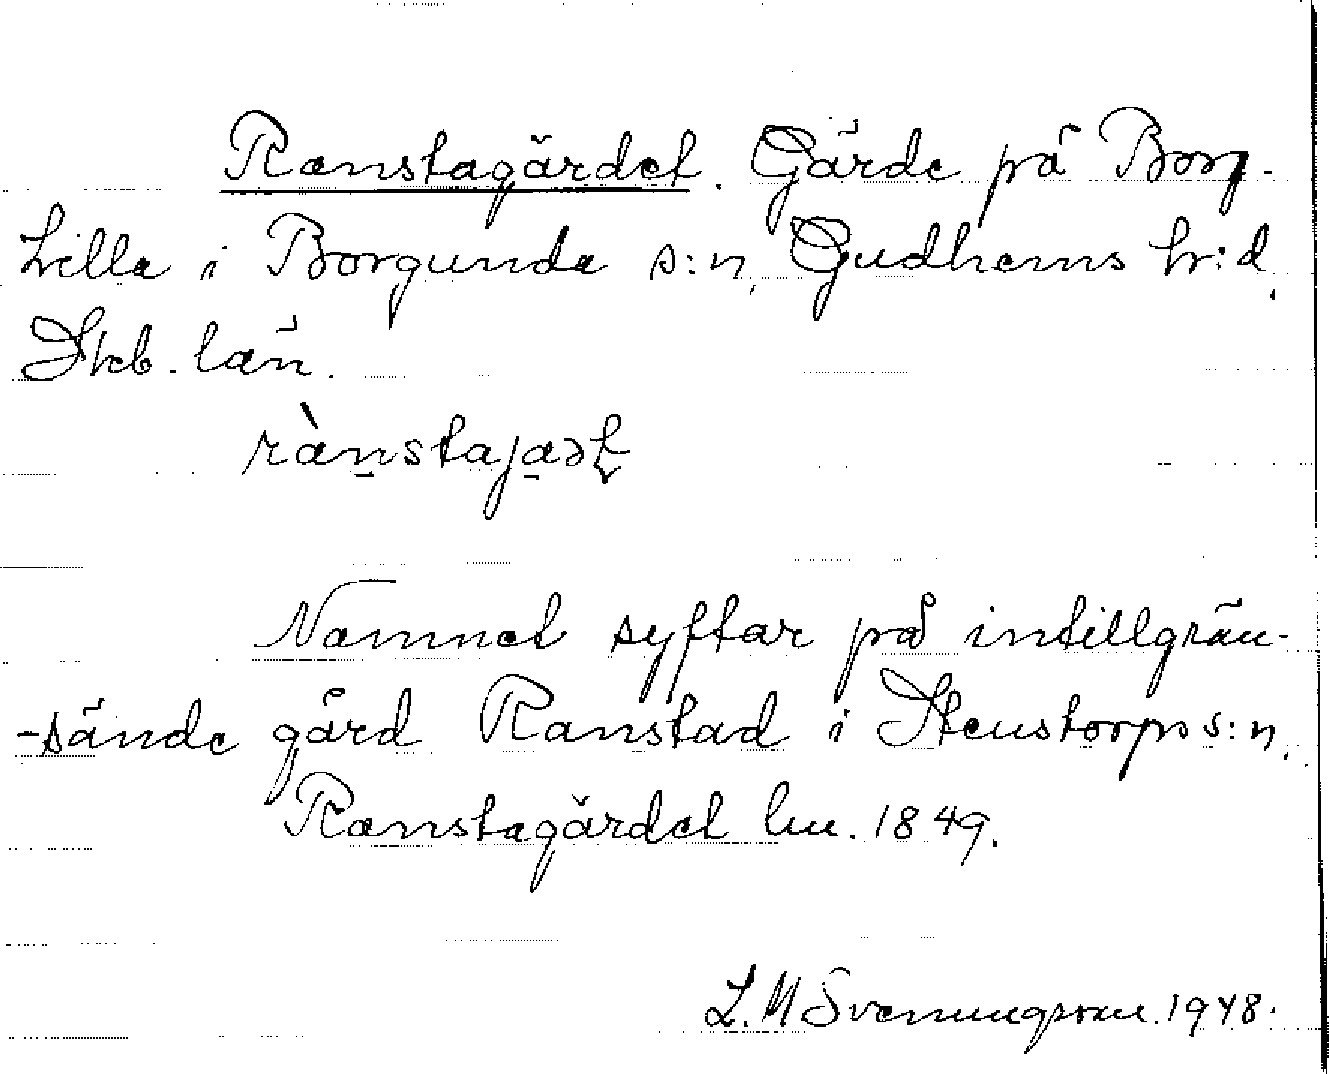 Ranstagärdet. Gärde på Borg-
Lilla i Borgunda s:n, Gudhems hr:d,
Skb. län.
rànstajaət
Namnet syftar på intillgrän-
-sände gård Ranstad i Stenstorps s:n.
Ranstagärdet lm. 1849.
L. M Svenungsson. 1948.